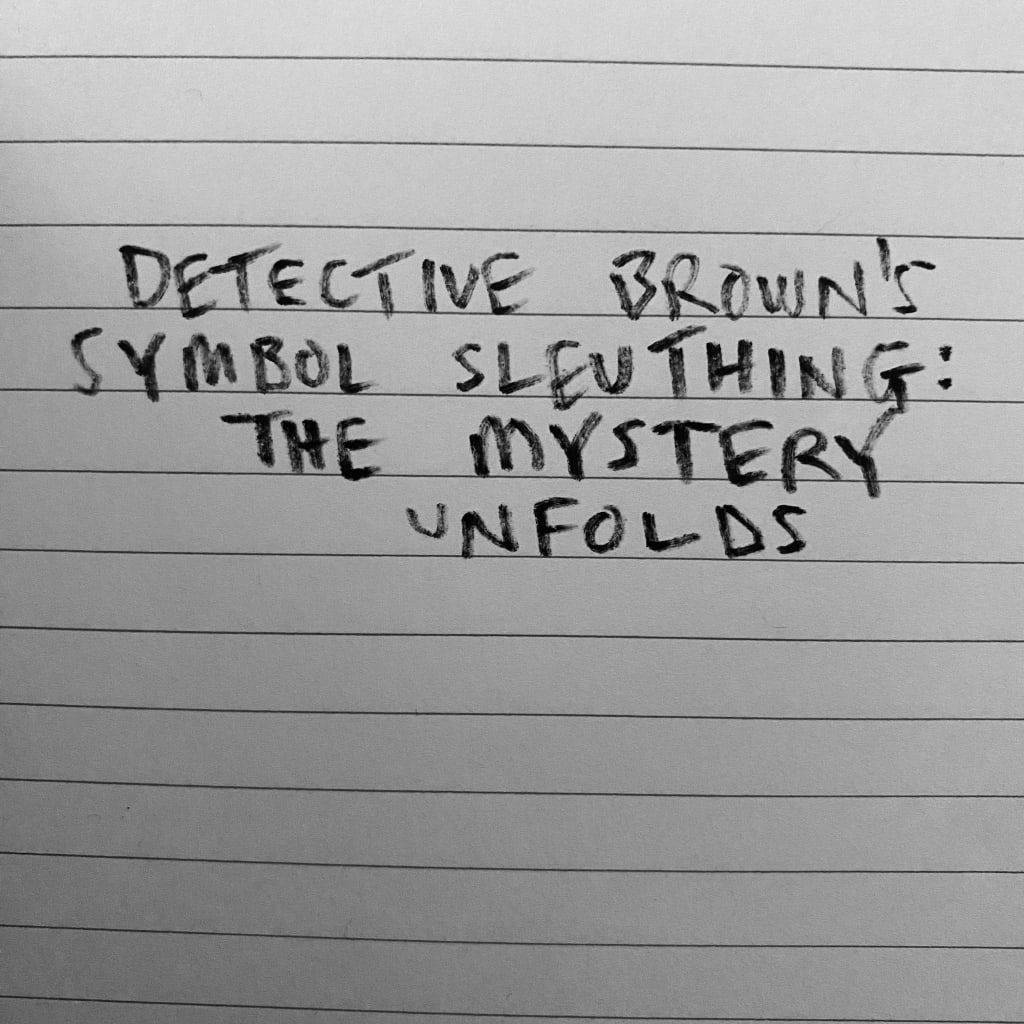 DETECTIVE BROWN'S
SYMBOL SLEUTHING:
THE MYSTERY
UNFOLDS